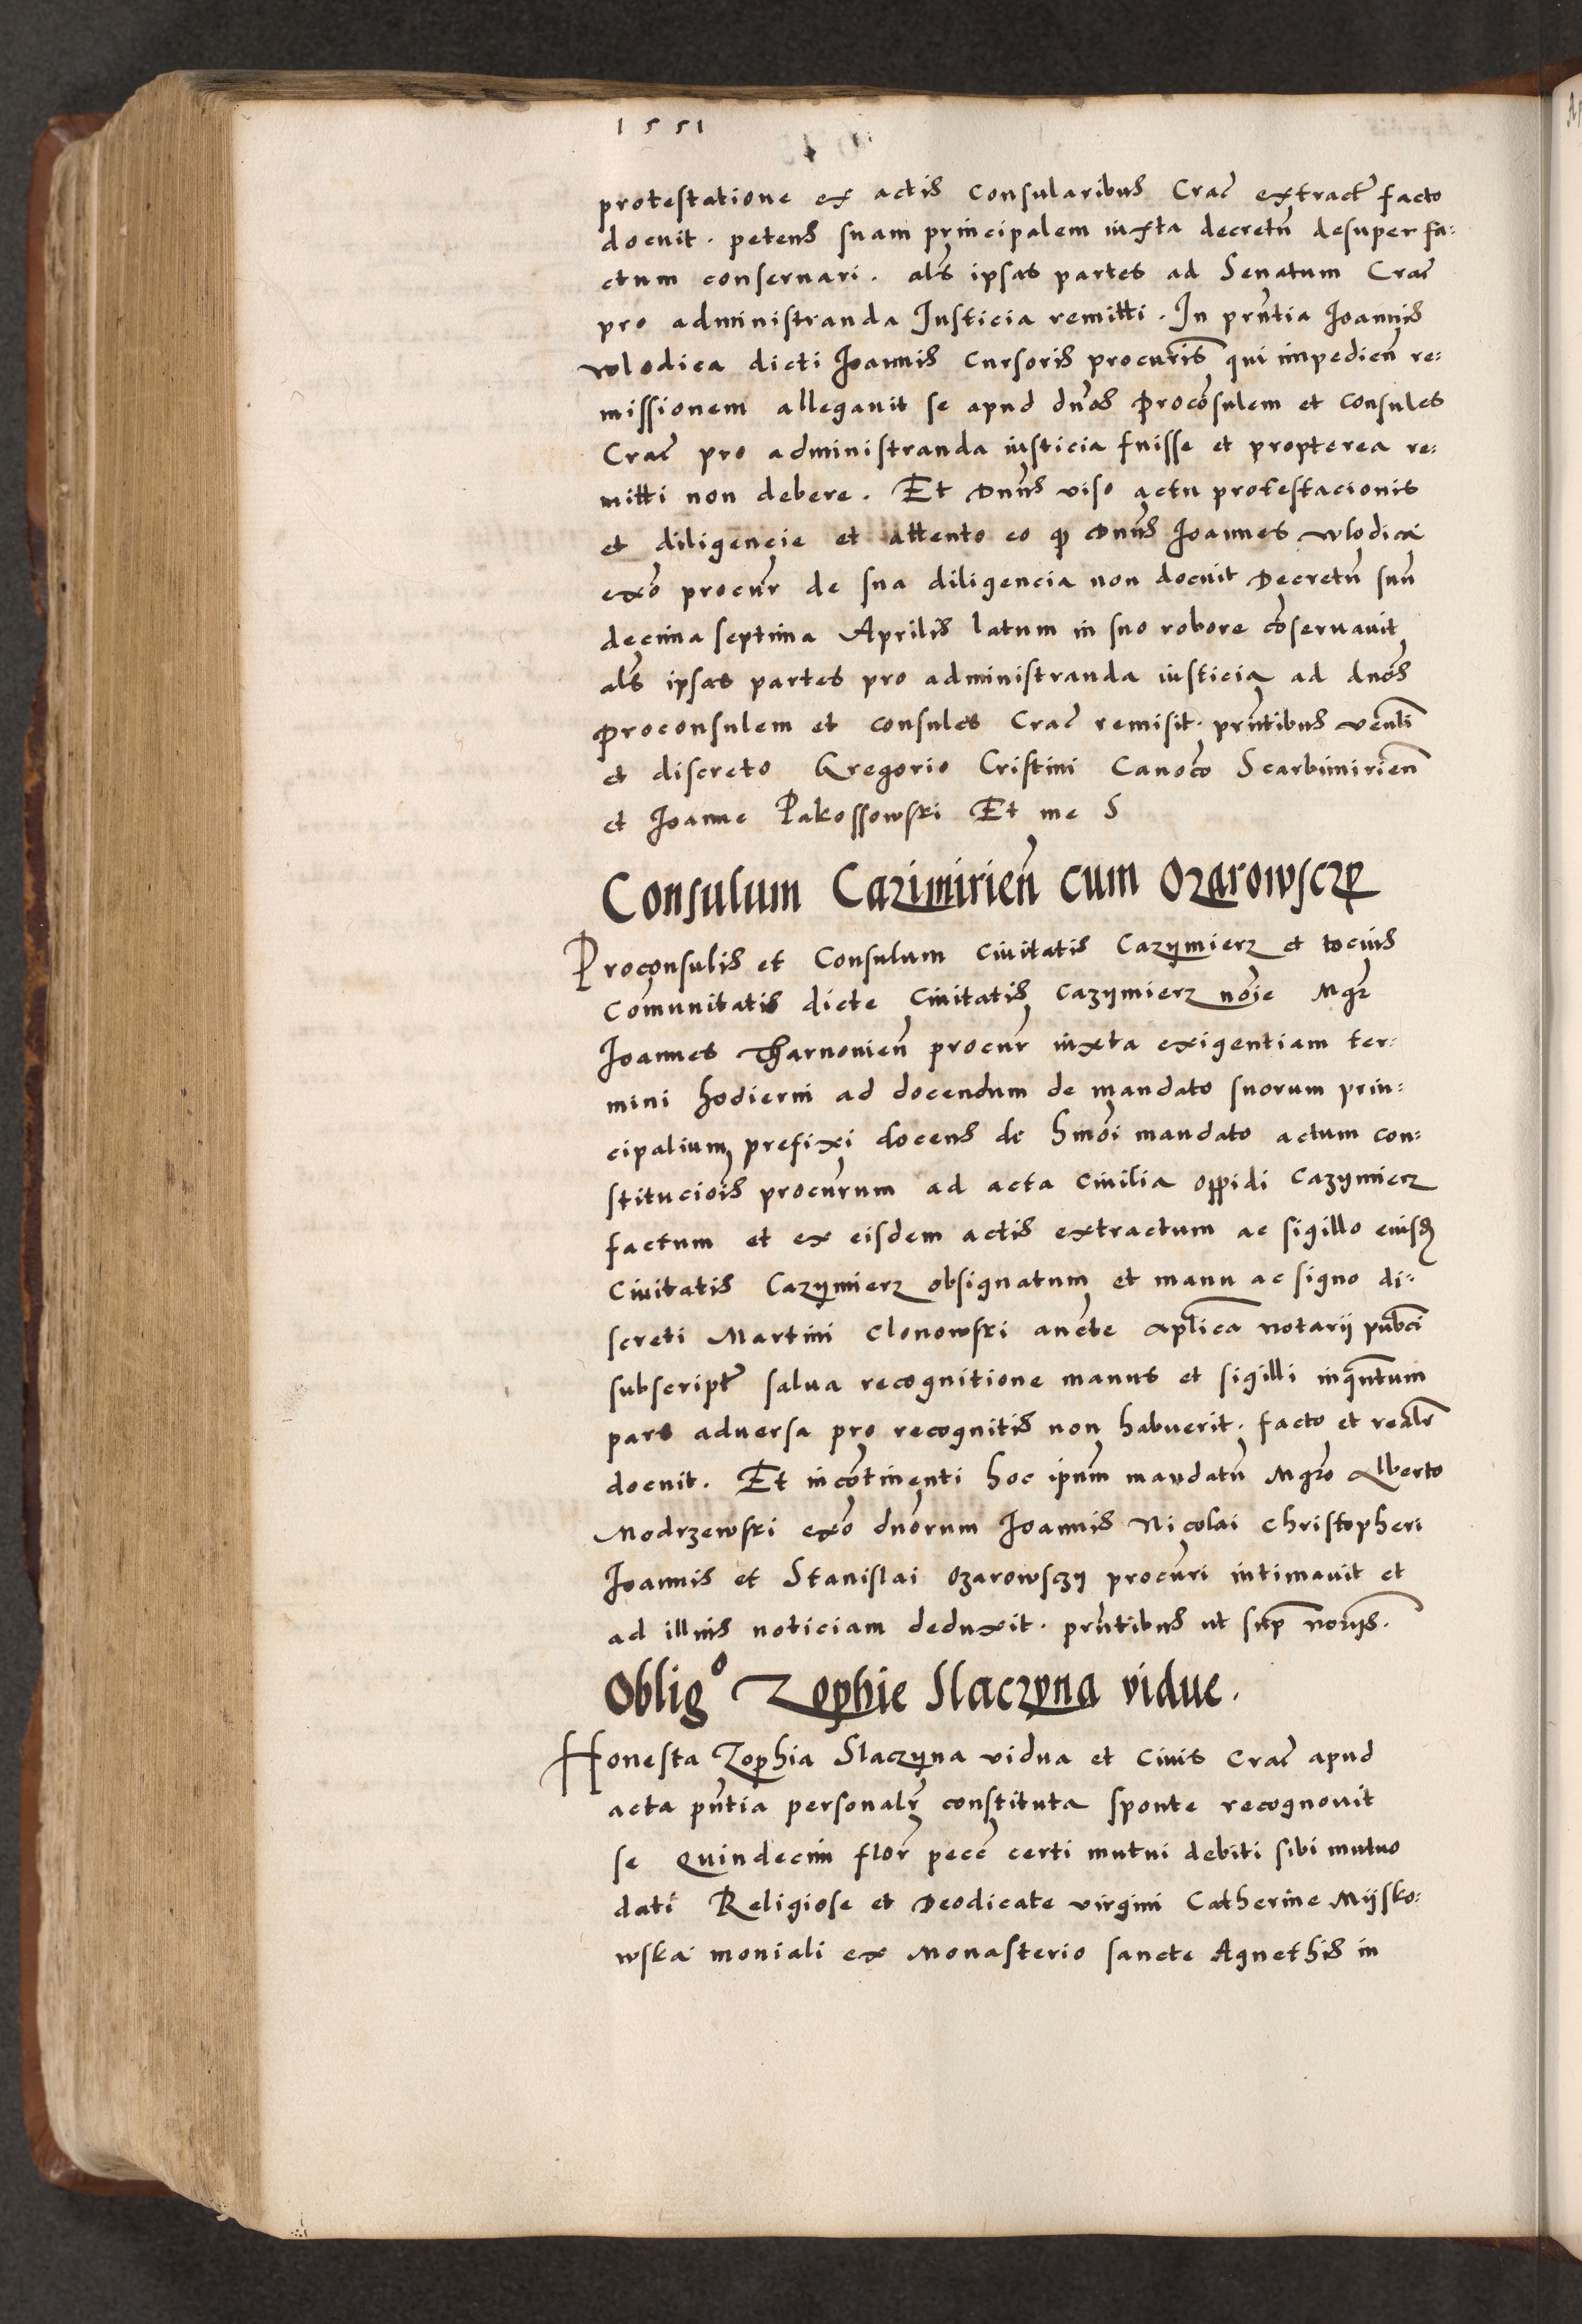 1551
protestatione ex actis Consularibus Crac̃ extract̃ facto
docuit. petens suam principalem iuxta decretũ desuper fa:
ctum conseruari. als̃ ipsas partes ad Senatum Crac̃
pro administranda Iusticia remitti. In prñtia Ioannis
wlodica dicti Ioannis Cursoris procuris̃ qui impedieñ re:
missionem allegauit se apud dños Procõsulem et Consules
Crac̃ pro administranda iusticia fuisse et propterea re:
mitti non debere. Et Dnũs viso actu protestacionis
et diligencie et attento eo ꝙ Dnũs Ioannes wlodica
exõ procur̃ de sua diligencia non docuit Decretũ suũ
decima septima Aprilis latum in suo robore cõseruauit
als̃ ipsas partes pro administranda iusticia ad dnõs
Proconsulem et consules Crac̃ remisit. prñtibus veñli
et discreto Gregorio Cristini Canoco Scarbimirieñ
et Ioanne Pakossowski Et me S
Consulum Cazimirieñ cum Ozarowsczy
Proconsulis et Consulum Ciuitatis Cazymierz et tocius
Cõmunitatis dicte Ciuitatis Cazymierz nõie Mgr̃
Ioannes Tharnouieñ procur̃ iuxta exigentiam ter:
mini hodierni ad docendum de mandato suorum prin:
cipalium prefixi docens de hmõi mandato actum con:
stituciois̃ procur̃um ad acta Ciuilia oppidi Cazymierz
factum et ex eisdem actis extractum ac sigillo eiusd̃
Ciuitatis Cazymierz obsignatum et manu ac signo di:
screti Martini Clonowski aucte aplica notarij pubci
subscript̃ salua recognitione manus et sigilli inqñtum
pars aduersa pro recognitis non habuerit. facto et realr̃
docuit. Et incõtinenti hoc ipm̃ mandatũ Mgrõ Alberto
Modrzewski exõ dnõrum Ioannis Nicolai Christopheri
Ioannis et Stanislai Ozarowsczy procuri intimauit et
ad illius noticiam deduxit. prñtibus ut sup̃ norijs.
Obligᵒ Zophie Slaczyna vidue.
Honesta Zophia Slaczyna vidua et Ciuis Crac̃ apud
acta pñtia personalr̃ constituta sponte recognouit
se Quindecim flor̃ pecc̃ certi mutui debiti sibi mutuo
dati Religiose et Deodicate virgini Catherine Mijsko:
wska moniali ex Monasterio sancte Agnethis in